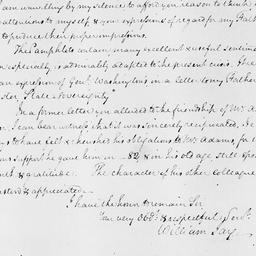 am unwilling by my silence to afford you reason to think
attentions to myself & your expressions of regard for my Fath
to produce their proper impressions.
The Pamphlet contains many excellent & useful sentime
especially is admirably adapted to the present crisis. There
an expression of Genl. Washington's in a letter to my Father
ster State Sovereignty"
In a former letter you alluded to the friendship of Mr Ad
I can bear witness that it was sincerely reciprocated. He
to have felt & cherished his obligations to Mr Adams, for
support he gave him in -82, & in his old age still spo
& gratitude. The character of his other colleague
& appreciated—
I have the honor to remain Sir
Your very Obt. & respectful Servt.
William Jay